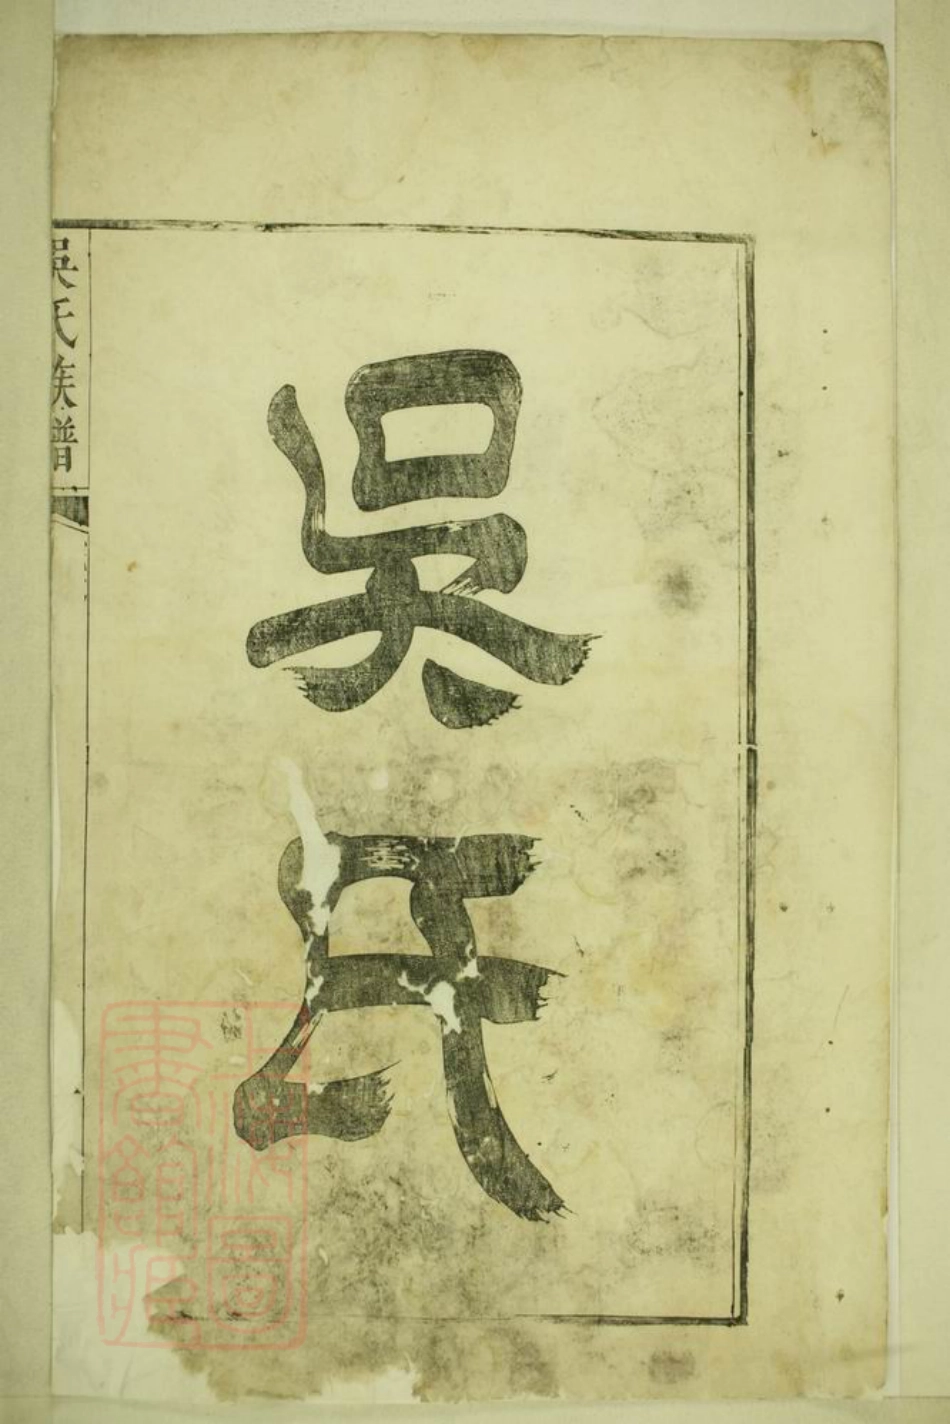 吳氏
吳氏族譜
上海圖書館藏